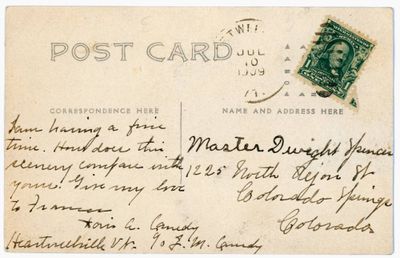 POST CARD
JUL
10
1909
CORRESPONDENCE HERE
NAME AND ADDRESS HERE
I am having a fine
time. How does this
scenery compare with
yours. Give my love
to Frances
Doris A. Canedy
Heartwellville Vt. % F. M. Canedy
Master Dwight Spencer
1225 North Tejon St
Colorado Springs
Colorado